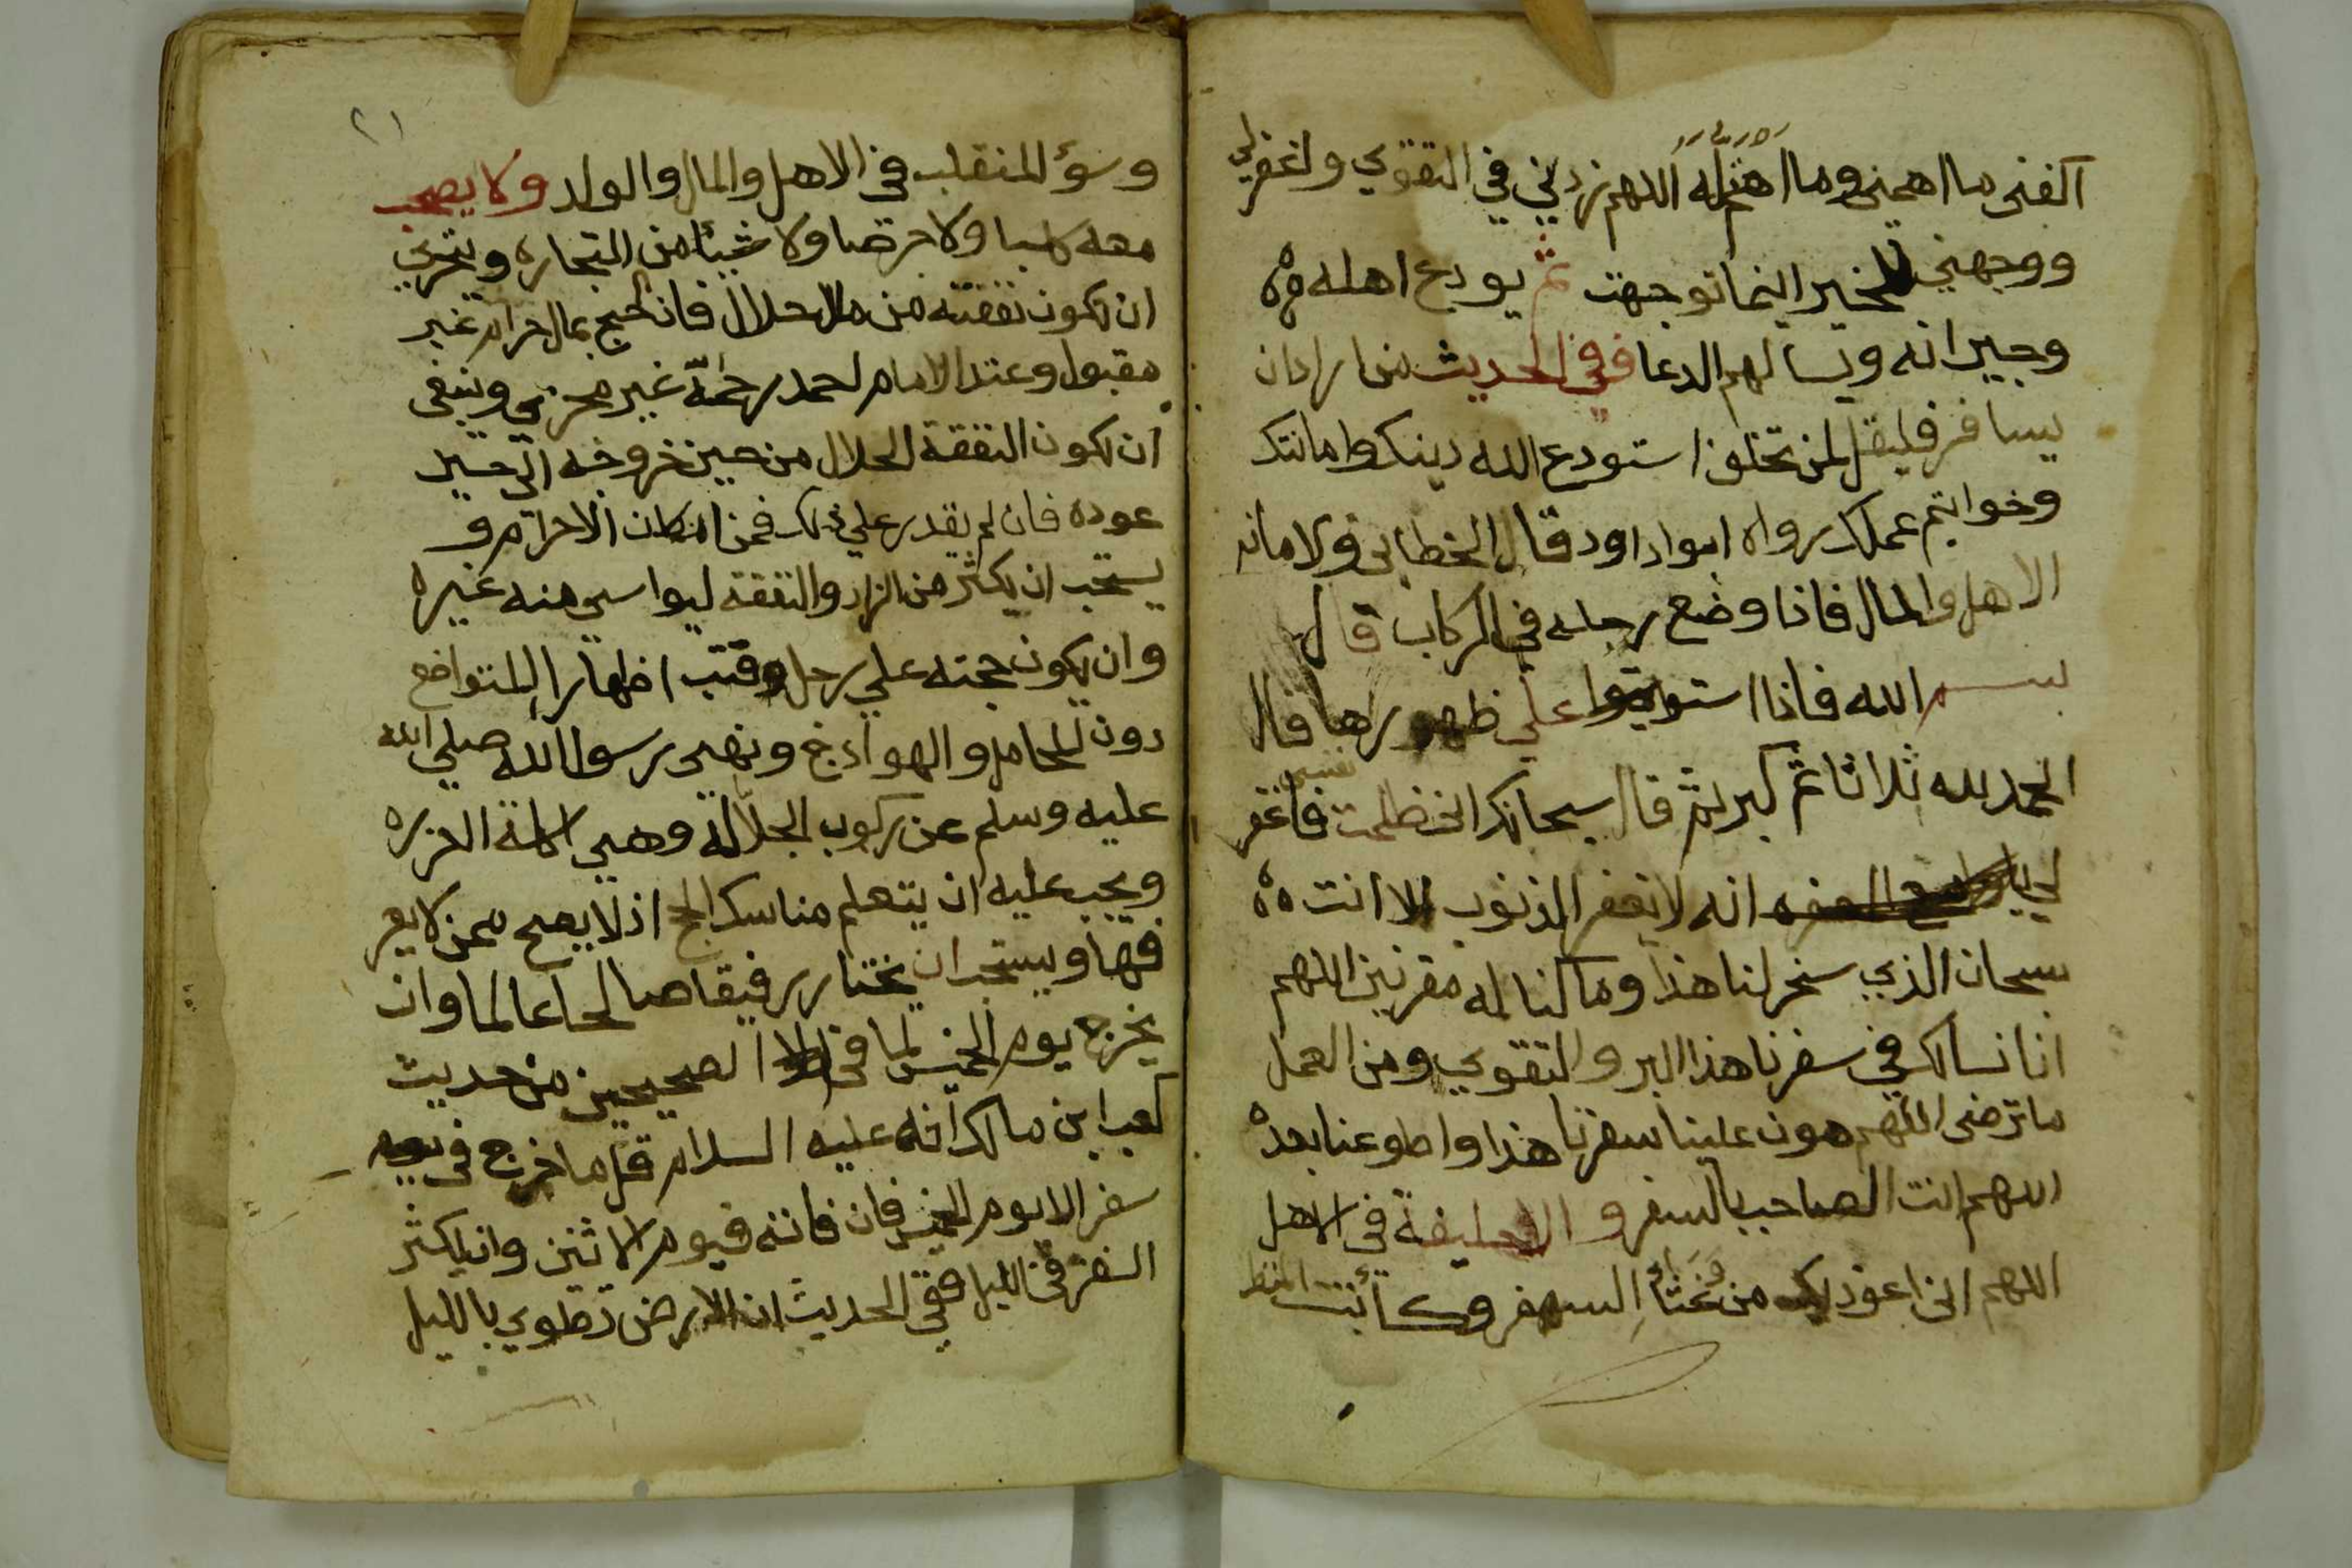 اكفني ما اهمني وما اهتم له اللهم زدني في التقوي واغفر لي
ووجهني للخير اينما توجهت ثم يودع اهله
وجيرانه ويسالهم الدعا ففي الحديث من اراد ان
يسافر فليقل لمن تخلف استودع الله دينك وامانتك
وخواتيم عملك رواه ابوا داود قال الخطابي والامانه
الاهل والمال فاذا وضع رجله في الركاب قال
بسم الله فاذا استويتوا علي ظهورها قال
الحمد لله ثلاثا ثم كبر ثم قال سبحانك اني ظلمت نفسي فاغفر
لي انه لا يغفر الذنوب الا انت
سبحان الذي سخر لنا هذا وما كنا له مقرنين اللهم
انا نسالك في سفرنا هذا البر والتقوي ومن العمل
ما ترضي اللهم هون علينا سفرنا هذا واطو عنا بعده
اللهم انت الصاحب بالسفر و الخليفة في الاهل
اللهم اني اعوذ بك من السفر وكائبت المنظر
٢١
وسؤ المنقلب في الاهل والمال والولد ولا يصحب
معه كلبا ولا جرصا ولا شيئا من التجاره ويتحري
ان يكون نفقته من مال حلال فان الحج بمال حرام غير
مقبول وعند الامام احمد رحمة غير مجزي وينبغي
ان يكون النفقة الحلال من حين خروجه الي حين
عوده فان لم يقدر علي ذلك فمن مكان الاحرام و
يستحب ان يكثر من الزاد والنفقة ليواسي منه غيره
وان يكون حجته علي رحل وقتب اظهارا للتواضع
دون المحامل والهوادج ونهي رسول الله صلي الله
عليه وسلم عن ركوب الجلالة وهي
ويجب عليه ان يتعلم مناسك الحج اذ لا يصح ممن لا يعر
فها ويستحب ان يختار رفيقا صالحا عالما وان
يخرج يوم الخميس لما في الصحيحين من حديث
كعب ابن مالك انه عليه السلام قل ما خرج في
سفر الا يوم الخميس فان فاته فيوم الاثنين وان يكثر
السفر في الليل ففي الحديث ان الارض تطوي بالليل